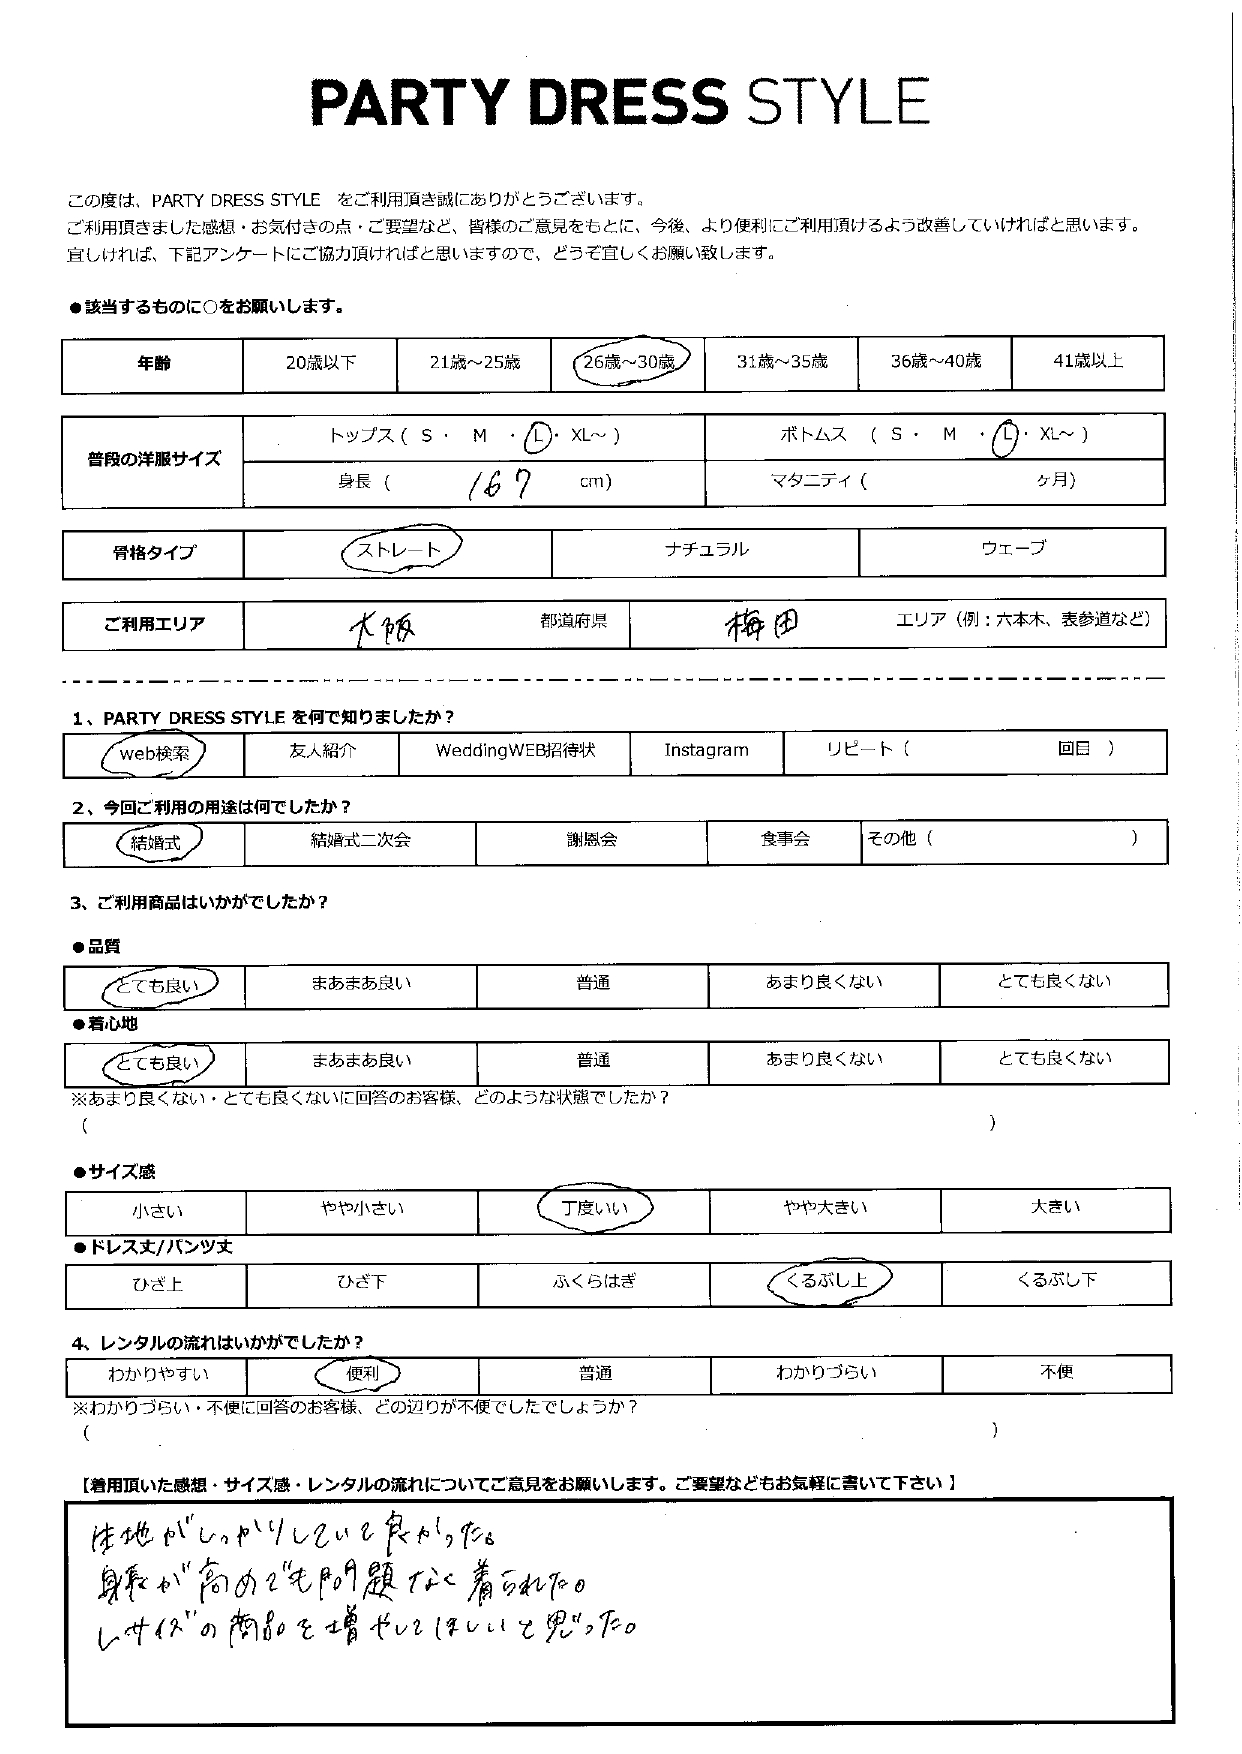 PARTY DRESS STYLE
この度は、PARTY DRESS STYLE　をご利用頂き誠にありがとうございます。
ご利用頂きました感想・お気付きの点・ご要望など、皆様のご意見をもとに、今後、より便利にご利用頂けるよう改善していければと思います。
宜しければ、下記アンケートにご協力頂ければと思いますので、どうぞ宜しくお願い致します。
●該当するものに○をお願いします。
年齢 20歳以下 21歳～25歳 26歳～30歳 31歳～35歳 36歳～40歳 41歳以上
普段の洋服サイズ トップス ( S ・ M ・ L ・ XL～ ) ボトムス ( S ・ M ・ L ・ XL～ )
身長 ( 167 cm) マタニティ ( ヶ月)
骨格タイプ ストレート ナチュラル ウェーブ
ご利用エリア 大阪 都道府県 梅田 エリア（例：六本木、表参道など）
1、PARTY DRESS STYLE を何で知りましたか？
web検索 友人紹介 WeddingWEB招待状 Instagram リピート（ 回目 ）
2、今回ご利用の用途は何でしたか？
結婚式 結婚式二次会 謝恩会 食事会 その他（ ）
3、ご利用商品はいかがでしたか？
●品質
とても良い まあまあ良い 普通 あまり良くない とても良くない
●着心地
とても良い まあまあ良い 普通 あまり良くない とても良くない
※あまり良くない・とても良くないに回答のお客様、どのような状態でしたか？
（ ）
●サイズ感
小さい やや小さい 丁度いい やや大きい 大きい
●ドレス丈/パンツ丈
ひざ上 ひざ下 ふくらはぎ くるぶし上 くるぶし下
4、レンタルの流れはいかがでしたか？
わかりやすい 便利 普通 わかりづらい 不便
※わかりづらい・不便に回答のお客様、どの辺りが不便でしたでしょうか？
（ ）
【着用頂いた感想・サイズ感・レンタルの流れについてご意見をお願いします。ご要望などもお気軽に書いて下さい 】
生地がしっかりしていて良かった。
身長が高めでも問題なく着られた。
Lサイズの商品を増やしてほしいと思った。